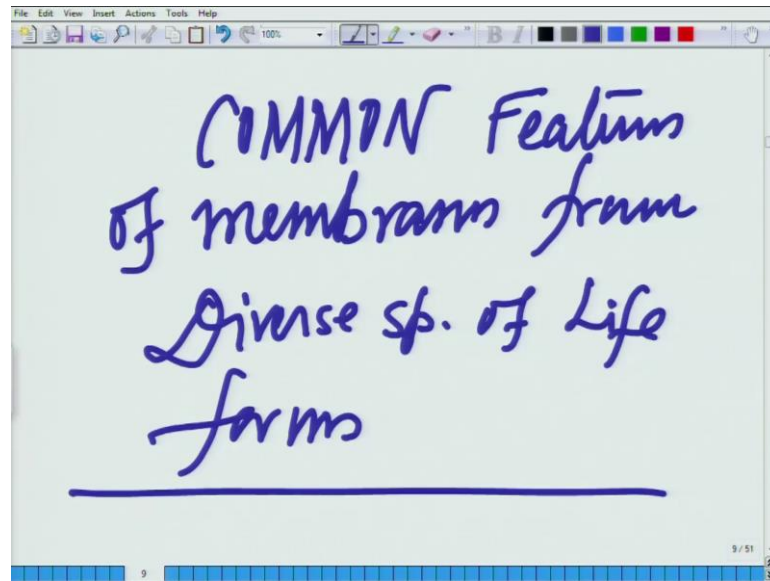 File Edit View Insert Actions Tools Help
100%
B I
COMMON Features
of membranes from
Diverse sp. of Life
forms
9/51
9